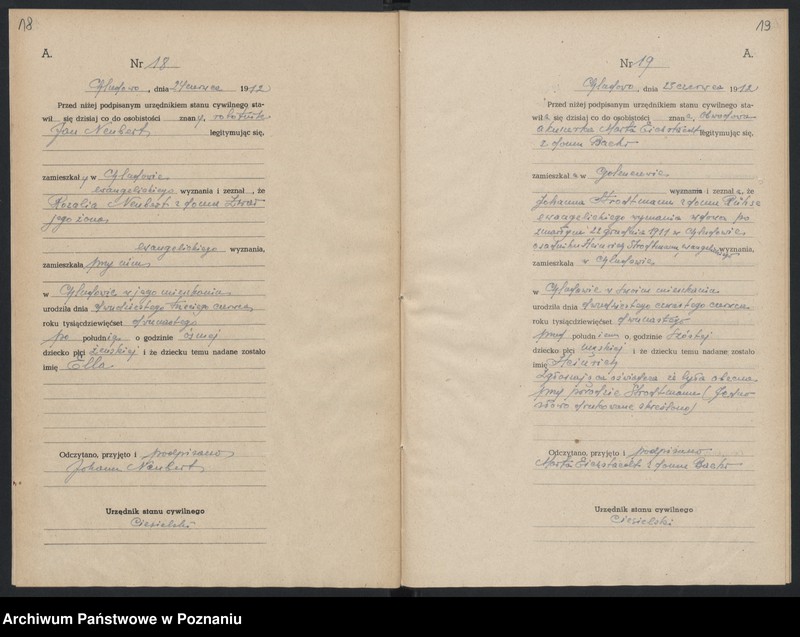 18
A.
Nr 18
dnia 24 czerwca 1912
Przed niżej podpisanym urzędnikiem stanu cywilnego sta-
wił się dzisiaj co do osobistości znany, robotnik
Jan Neubert legitymując się,
zamieszkały w
ewangelickiego wyznania i zeznał, że
Rozalia Neubert z domu
jego żona
ewangelickiego wyznania,
zamieszkała przy nim
w w jego mieszkaniu
urodziła dnia dwudziestego trzeciego czerwca
roku tysiącdziewięćset dwunastego
po południu o godzinie ósmej
dziecko płci żeńskiej i że dziecku temu nadane zostało
imię Ella
Odczytano, przyjęto i podpisano
Johann Neubert
Urzędnik stanu cywilnego
Ciesielski
19
A.
Nr 19
dnia 25 czerwca 1912
Przed niżej podpisanym urzędnikiem stanu cywilnego sta-
wiła się dzisiaj co do osobistości znana, obwodowa
akuszerka Marta legitymując się,
z domu Bachr
zamieszkała w
wyznania i zeznała, że
Johanna Strodtmann z domu
ewangelickiego wyznania wdowa po
zmarłym 22 grudnia 1911 w
Heinrich Strodtmann, ewangelickiego wyznania,
zamieszkała w
w w swoim mieszkaniu
urodziła dnia dwudziestego czwartego czerwca
roku tysiącdziewięćset dwunastego
przed południem o godzinie szóstej
dziecko płci męskiej i że dziecku temu nadane zostało
imię Heinrich
Zgłaszająca oświadcza że była obecna
przy porodzie Strodtmann (Jedno
słowo drukowane skreślono)
Odczytano, przyjęto i podpisano
Marta z domu Bachr
Urzędnik stanu cywilnego
Ciesielski
Archiwum Państwowe w Poznaniu